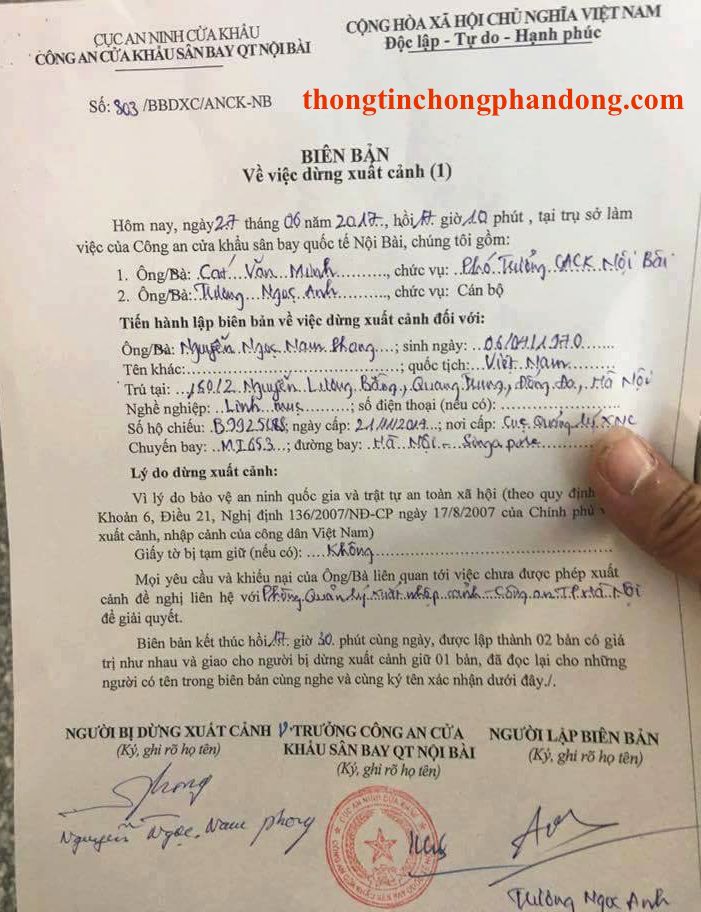 CỤC AN NINH CỬA KHẨU
CÔNG AN CỬA KHẨU SÂN BAY QT NỘI BÀI
CỘNG HÒA XÃ HỘI CHỦ NGHĨA VIỆT NAM
Độc lập - Tự do - Hạnh phúc
Số: 803 /BBDXC/ANCK-NB
thongtinchongphandong.com
BIÊN BẢN
Về việc dừng xuất cảnh (1)
Hôm nay, ngày 27 tháng 06 năm 2017, hồi 17 giờ 10 phút, tại trụ sở làm
việc của Công an cửa khẩu sân bay quốc tế Nội Bài, chúng tôi gồm:
1. Ông/Bà: Cát Văn Minh, chức vụ: Phó Trưởng CACK Nội Bài
2. Ông/Bà: Trương Ngọc Anh, chức vụ: Cán bộ
Tiến hành lập biên bản về việc dừng xuất cảnh đối với:
Ông/Bà: Nguyễn Ngọc Nam Phong; sinh ngày: 06/07/1970
Tên khác:; quốc tịch: Việt Nam
Trú tại: 180/2 Nguyễn Lương Bằng, Quang Trung, Đống Đa, Hà Nội
Nghề nghiệp: Linh mục; số điện thoại (nếu có):
Số hộ chiếu:; ngày cấp:; nơi cấp: Cục Quản lý XNC
Chuyến bay: MI653; đường bay: Hà Nội - Singapore
Lý do dừng xuất cảnh:
Vì lý do bảo vệ an ninh quốc gia và trật tự an toàn xã hội (theo quy định
Khoản 6, Điều 21, Nghị định 136/2007/NĐ-CP ngày 17/8/2007 của Chính phủ
xuất cảnh, nhập cảnh của công dân Việt Nam)
Giấy tờ bị tạm giữ (nếu có): Không
Mọi yêu cầu và khiếu nại của Ông/Bà liên quan tới việc chưa được phép xuất
cảnh đề nghị liên hệ với Phòng Quản lý xuất nhập cảnh - Công an TP Hà Nội
để giải quyết.
Biên bản kết thúc hồi 17 giờ 30 phút cùng ngày, được lập thành 02 bản có giá
trị như nhau và giao cho người bị dừng xuất cảnh giữ 01 bản, đã đọc lại cho những
người có tên trong biên bản cùng nghe và cùng ký tên xác nhận dưới đây./.
NGƯỜI BỊ DỪNG XUẤT CẢNH
(Ký, ghi rõ họ tên)
Phong
Nguyễn Ngọc Nam Phong
TRƯỞNG CÔNG AN CỬA
KHẨU SÂN BAY QT NỘI BÀI
(Ký, ghi rõ họ tên)
CỤC AN NINH CỬA KHẨU
NGƯỜI LẬP BIÊN BẢN
(Ký, ghi rõ họ tên)
Trương Ngọc Anh